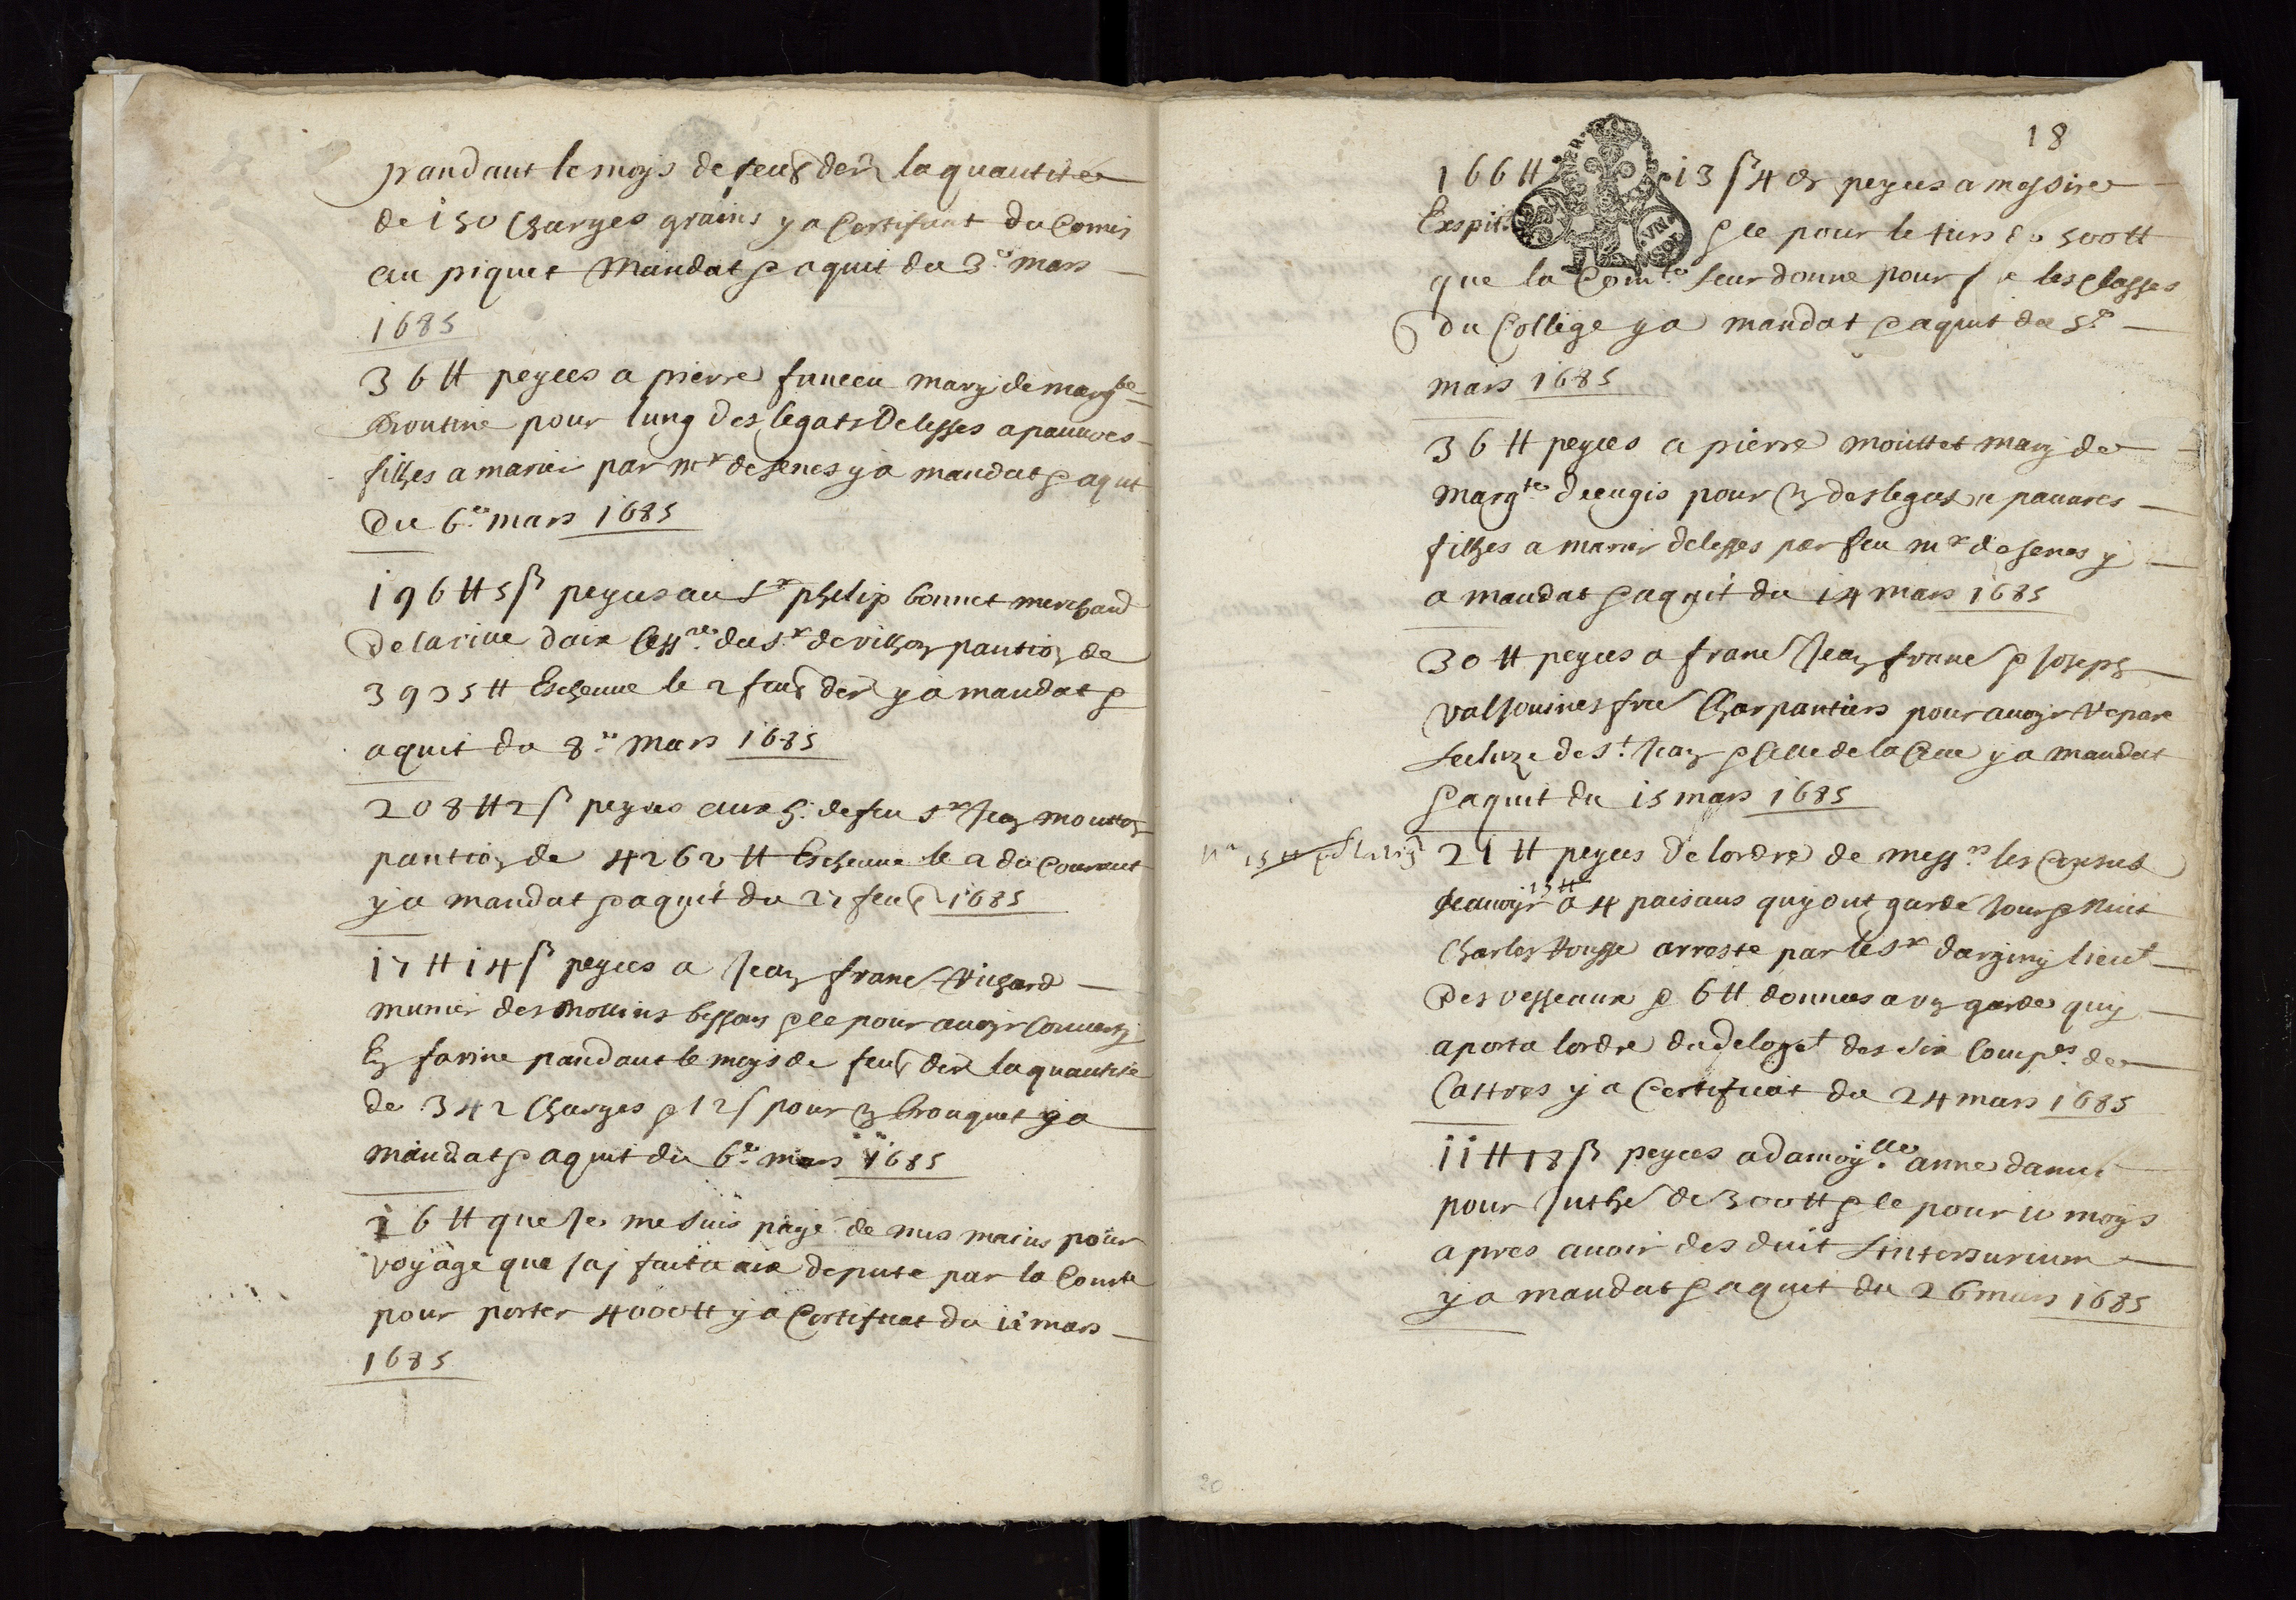 pandant le moys de feur der la quantite
de 150 charges grains y a certificat du comis
au piquet mandat & aquit du 3.e mars
1685
36 tt peyees a pierre funeau mary de marg.te
pour lung des legats delesses a pauures
filhes a marier par mr de senes y a mandat & aqut
du 6.e mars 1685
196 tt 5 s peyees au sr phelip bonnet merchand
de la ville daix cess.re du sr de vilhon pantion de
3925 tt Escheue le 2 feur der y a mandat &
aquit du 8.e mars 1685
208 tt 2 s peyees aux h. de feu sr Jean moutton
pantion de 4262 tt Escheue le 2 du courant
y a mandat & aquit du 27 feur 1685
17 tt 14 s peyees a Jean franc Richard
munier des mollins bessons & ce pour auoyr conuerty
En farine pandant le moys de feur der la quantite
de 342 charges & 12 s pour un brouquet y a
mandat & aquit du 6.e mars 1685
16 tt que Je me suis paye de mes mains pour
voyage que Jaj fait a aix depute par la Com.te
pour porter 4000 tt y a certificat du 11 mars
1685
18
166 tt 13 s 4 d peyees a messire
Exspit & ce pour le tiers de 500 tt
que la Com.te leur donne pour f e les classes
du College y a mandat & aquit du 5.e
mars 1685
36 tt peyees a pierre mouttet mary de
marg.te deeugis pour un des legat a pauures
filhes a marier delesses par feu mr de senes y
a mandat & aquit du 14 mars 1685
30 tt peyees a franc Jean franc & Joseph
charpantiers pour auoyr repare
Lecluze de st Jean & celle de la Crau y a mandat
& aquit du 15 mars 1685
21 tt peyees de lordre de mess.rs les Consuls
scauoyr 15 tt a 4 paisans quy ont garde Jour & nuit
Charles housse arreste par le sr dargimy lieut
des vesseaux & 6 tt donnees a un garde quy
aporta lordre du delogt des six comp.es de
Castres y a certificat du 24 mars 1685
11 tt 18 s peyees a damoy.lle anne
pour Juthe de 300 tt & ce pour 10 moys
apres auoir des duit Linterurium
y a mandat & aquit du 26 mars 1685
20